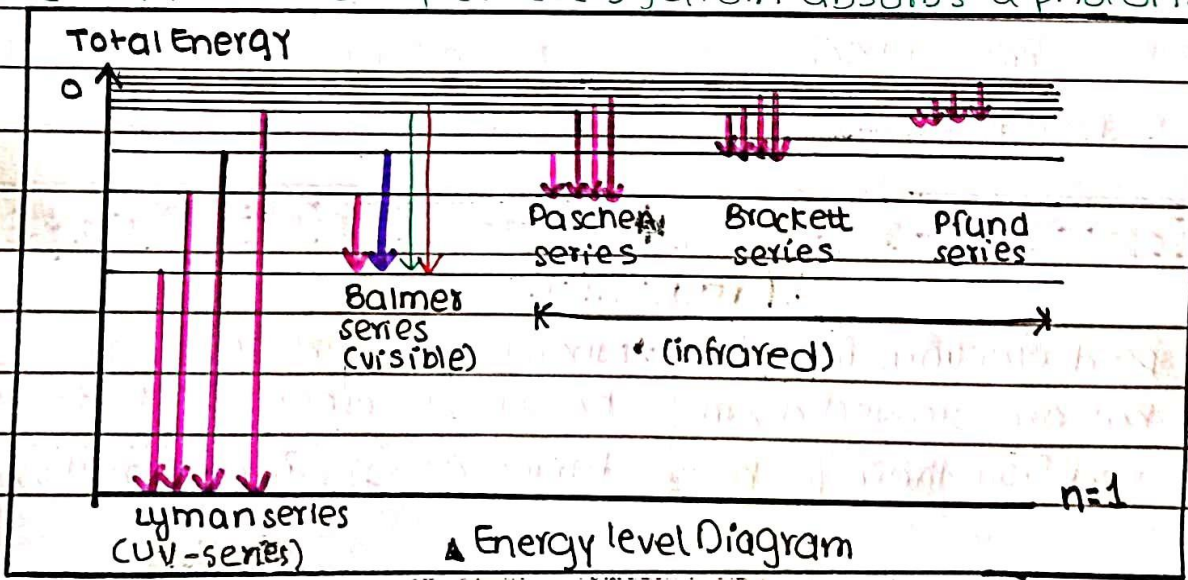 absorbs a photon
Total Energy
0
Paschen
series
Brackett
series
Pfund
series
Balmer
series
(visible)
(infrared)
n=1
Lyman series
(UV-series)
▲ Energy level Diagram